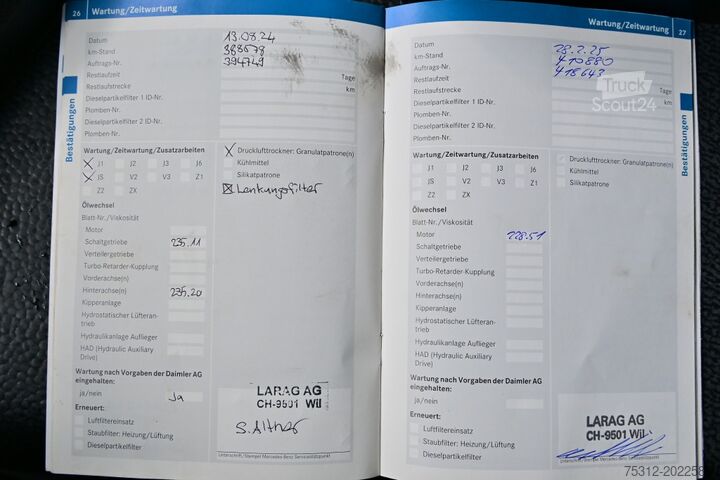 26 Wartung/Zeitwartung
Datum 13.08.24
km-Stand 388578
Auftrags-Nr. 394749
Restlaufzeit Tage
Restlaufstrecke km
Dieselpartikelfilter 1 ID-Nr.
Plomben-Nr.
Dieselpartikelfilter 2 ID-Nr.
Plomben-Nr.
Bestätigungen
Wartung/Zeitwartung/Zusatzarbeiten
X J1 J2 J3 J6
X JS V2 V3 Z1
Z2 ZX
X Drucklufttrockner: Granulatpatrone(n)
Kühlmittel
Silikatpatrone
X Lenkungsfilter
Ölwechsel
Blatt-Nr./Viskosität
Motor
Schaltgetriebe 235.11
Verteilergetriebe
Turbo-Retarder-Kupplung
Vorderachse(n)
Hinterachse(n) 235.20
Kipperanlage
Hydrostatischer Lüfteran-
trieb
Hydraulikanlage Auflieger
HAD (Hydraulic Auxiliary
Drive)
Wartung nach Vorgaben der Daimler AG
eingehalten:
ja/nein Ja
Erneuert:
Luftfiltereinsatz
Staubfilter: Heizung/Lüftung
Dieselpartikelfilter
LARAG AG
CH-9501 Wil
Unterschrift/Stempel Mercedes-Benz Servicestützpunkt
Wartung/Zeitwartung 27
Datum 28.2.25
km-Stand 410880
Auftrags-Nr. 418643
Restlaufzeit Tage
Restlaufstrecke km
Dieselpartikelfilter 1 ID-Nr.
Plomben-Nr.
Dieselpartikelfilter 2 ID-Nr.
Plomben-Nr.
Bestätigungen
Wartung/Zeitwartung/Zusatzarbeiten
J1 J2 J3 J6
JS V2 V3 Z1
Z2 ZX
Drucklufttrockner: Granulatpatrone(n)
Kühlmittel
Silikatpatrone
Ölwechsel
Blatt-Nr./Viskosität
Motor 228.51
Schaltgetriebe
Verteilergetriebe
Turbo-Retarder-Kupplung
Vorderachse(n)
Hinterachse(n)
Kipperanlage
Hydrostatischer Lüfteran-
trieb
Hydraulikanlage Auflieger
HAD (Hydraulic Auxiliary
Drive)
Wartung nach Vorgaben der Daimler AG
eingehalten:
ja/nein
Erneuert:
Luftfiltereinsatz
Staubfilter: Heizung/Lüftung
Dieselpartikelfilter
LARAG AG
CH-9501 Wil
Unterschrift/Stempel Mercedes-Benz Servicestützpunkt
Truck
Scout24
75312-202258